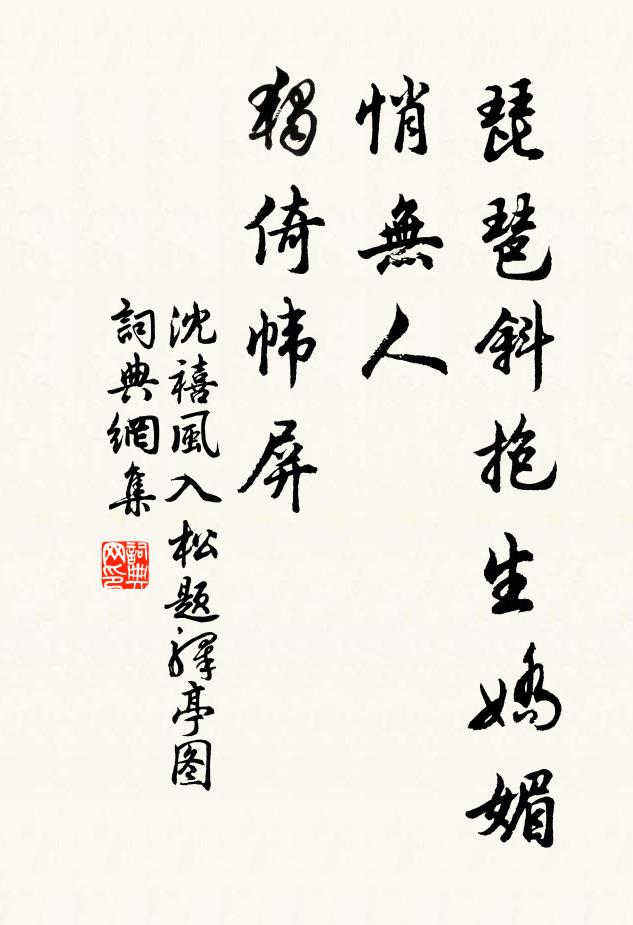 琵琶斜抱生嬌媚
悄無人
獨倚幃屏
沈禧風入松題驛亭图
詞典網集
詞典网印